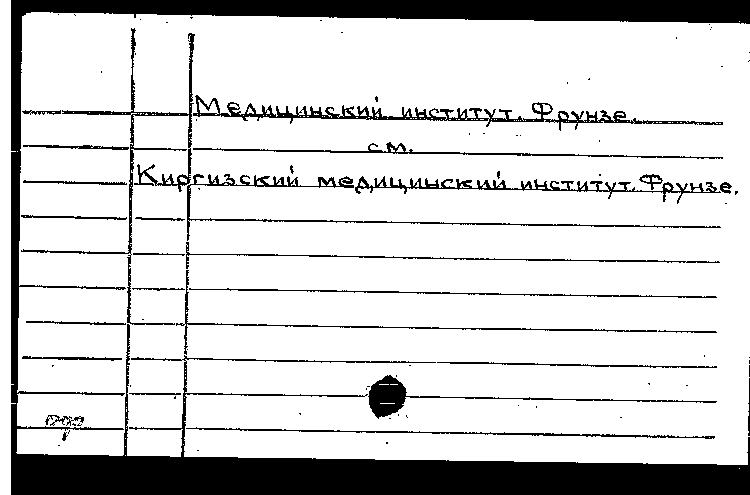 Медицинский институт. Фрунзе.
см.
Киргизский медицинский институт. Фрунзе.